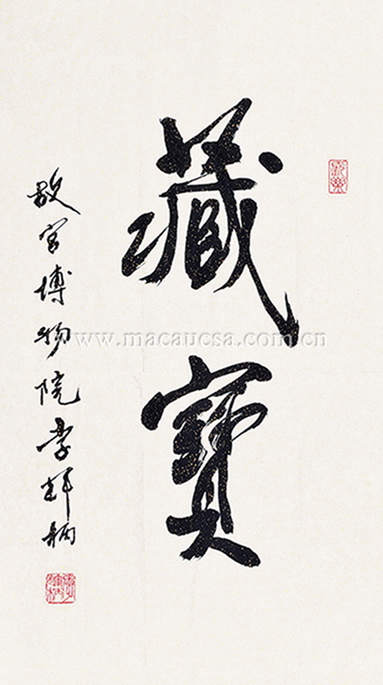 藏寶
故宮博物院李輝炳
www.macaucsa.com.cn